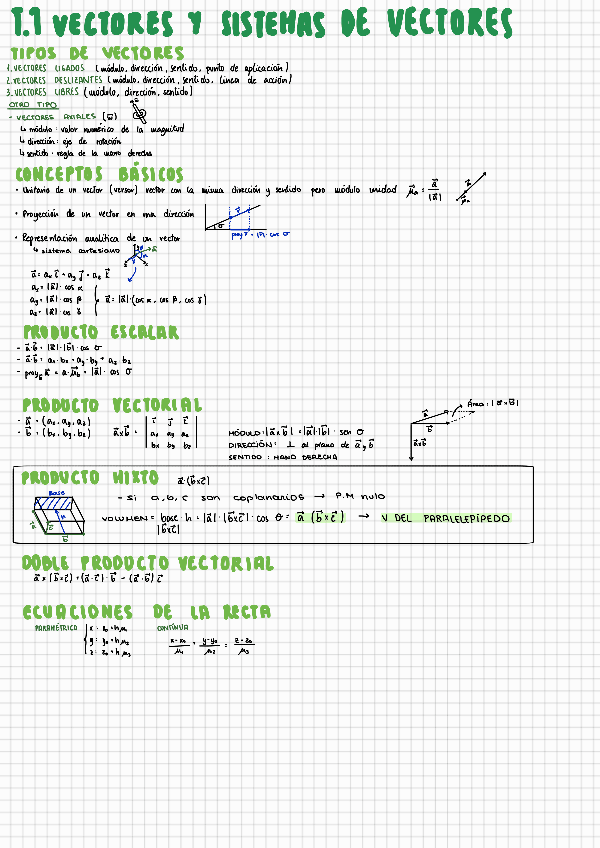 T.1 VECTORES Y SISTEMAS DE VECTORES
TIPOS DE VECTORES
1. VECTORES LIGADOS (módulo, dirección, sentido, punto de aplicación)
2. VECTORES DESLIZANTES (módulo, dirección, sentido, línea de acción)
3. VECTORES LIBRES (módulo, dirección, sentido)
OTRO TIPO
- VECTORES AXIALES (ω⃗)
↳ módulo: valor numérico de la magnitud
↳ dirección: eje de rotación
↳ sentido: regla de la mano derecha
CONCEPTOS BÁSICOS
· Unitario de un vector (versor) vector con la misma dirección y sentido pero módulo unidad μ⃗a = a⃗/|a⃗|
· Proyección de un vector en una dirección
proy r⃗ = |r⃗| · cos σ
· Representación analítica de un vector
↳ sistema cartesiano
a⃗ = ax i⃗ + ay j⃗ + az k⃗
ax = |a⃗| · cos α
ay = |a⃗| · cos β
az = |a⃗| · cos γ
a⃗ = |a⃗| · (cos α, cos β, cos γ)
PRODUCTO ESCALAR
- a⃗ · b⃗ = |a⃗| · |b⃗| · cos σ
- a⃗ · b⃗ = ax · bx + ay · by + az · bz
- proy b⃗ a⃗ = a⃗ · μ⃗b = |a⃗| · cos σ
PRODUCTO VECTORIAL
- a⃗ = (ax, ay, az)
- b⃗ = (bx, by, bz)
a⃗xb⃗ =
i⃗ j⃗ k⃗
ax ay az
bx by bz
MÓDULO: |a⃗xb⃗| = |a⃗| · |b⃗| · sen σ
DIRECCIÓN: ⊥ al plano de a⃗ y b⃗
SENTIDO: MANO DERECHA
Área: |a⃗xb⃗|
a⃗
b⃗
a⃗xb⃗
PRODUCTO MIXTO a⃗ · (b⃗xc⃗)
Base
- Si a, b, c son coplanarios → P.M nulo
VOLUMEN = base · h = |a⃗| · |b⃗xc⃗| · cos θ = a⃗ (b⃗xc⃗) → V DEL PARALELEPÍPEDO
|b⃗xc⃗|
DOBLE PRODUCTO VECTORIAL
a⃗ x (b⃗xc⃗) = (a⃗ · c⃗) · b⃗ - (a⃗ · b⃗) c⃗
ECUACIONES DE LA RECTA
PARAMÉTRICA
x = x₀ + h μ₁
y = y₀ + h μ₂
z = z₀ + h μ₃
CONTÍNUA
x-x₀/μ₁ = y-y₀/μ₂ = z-z₀/μ₃